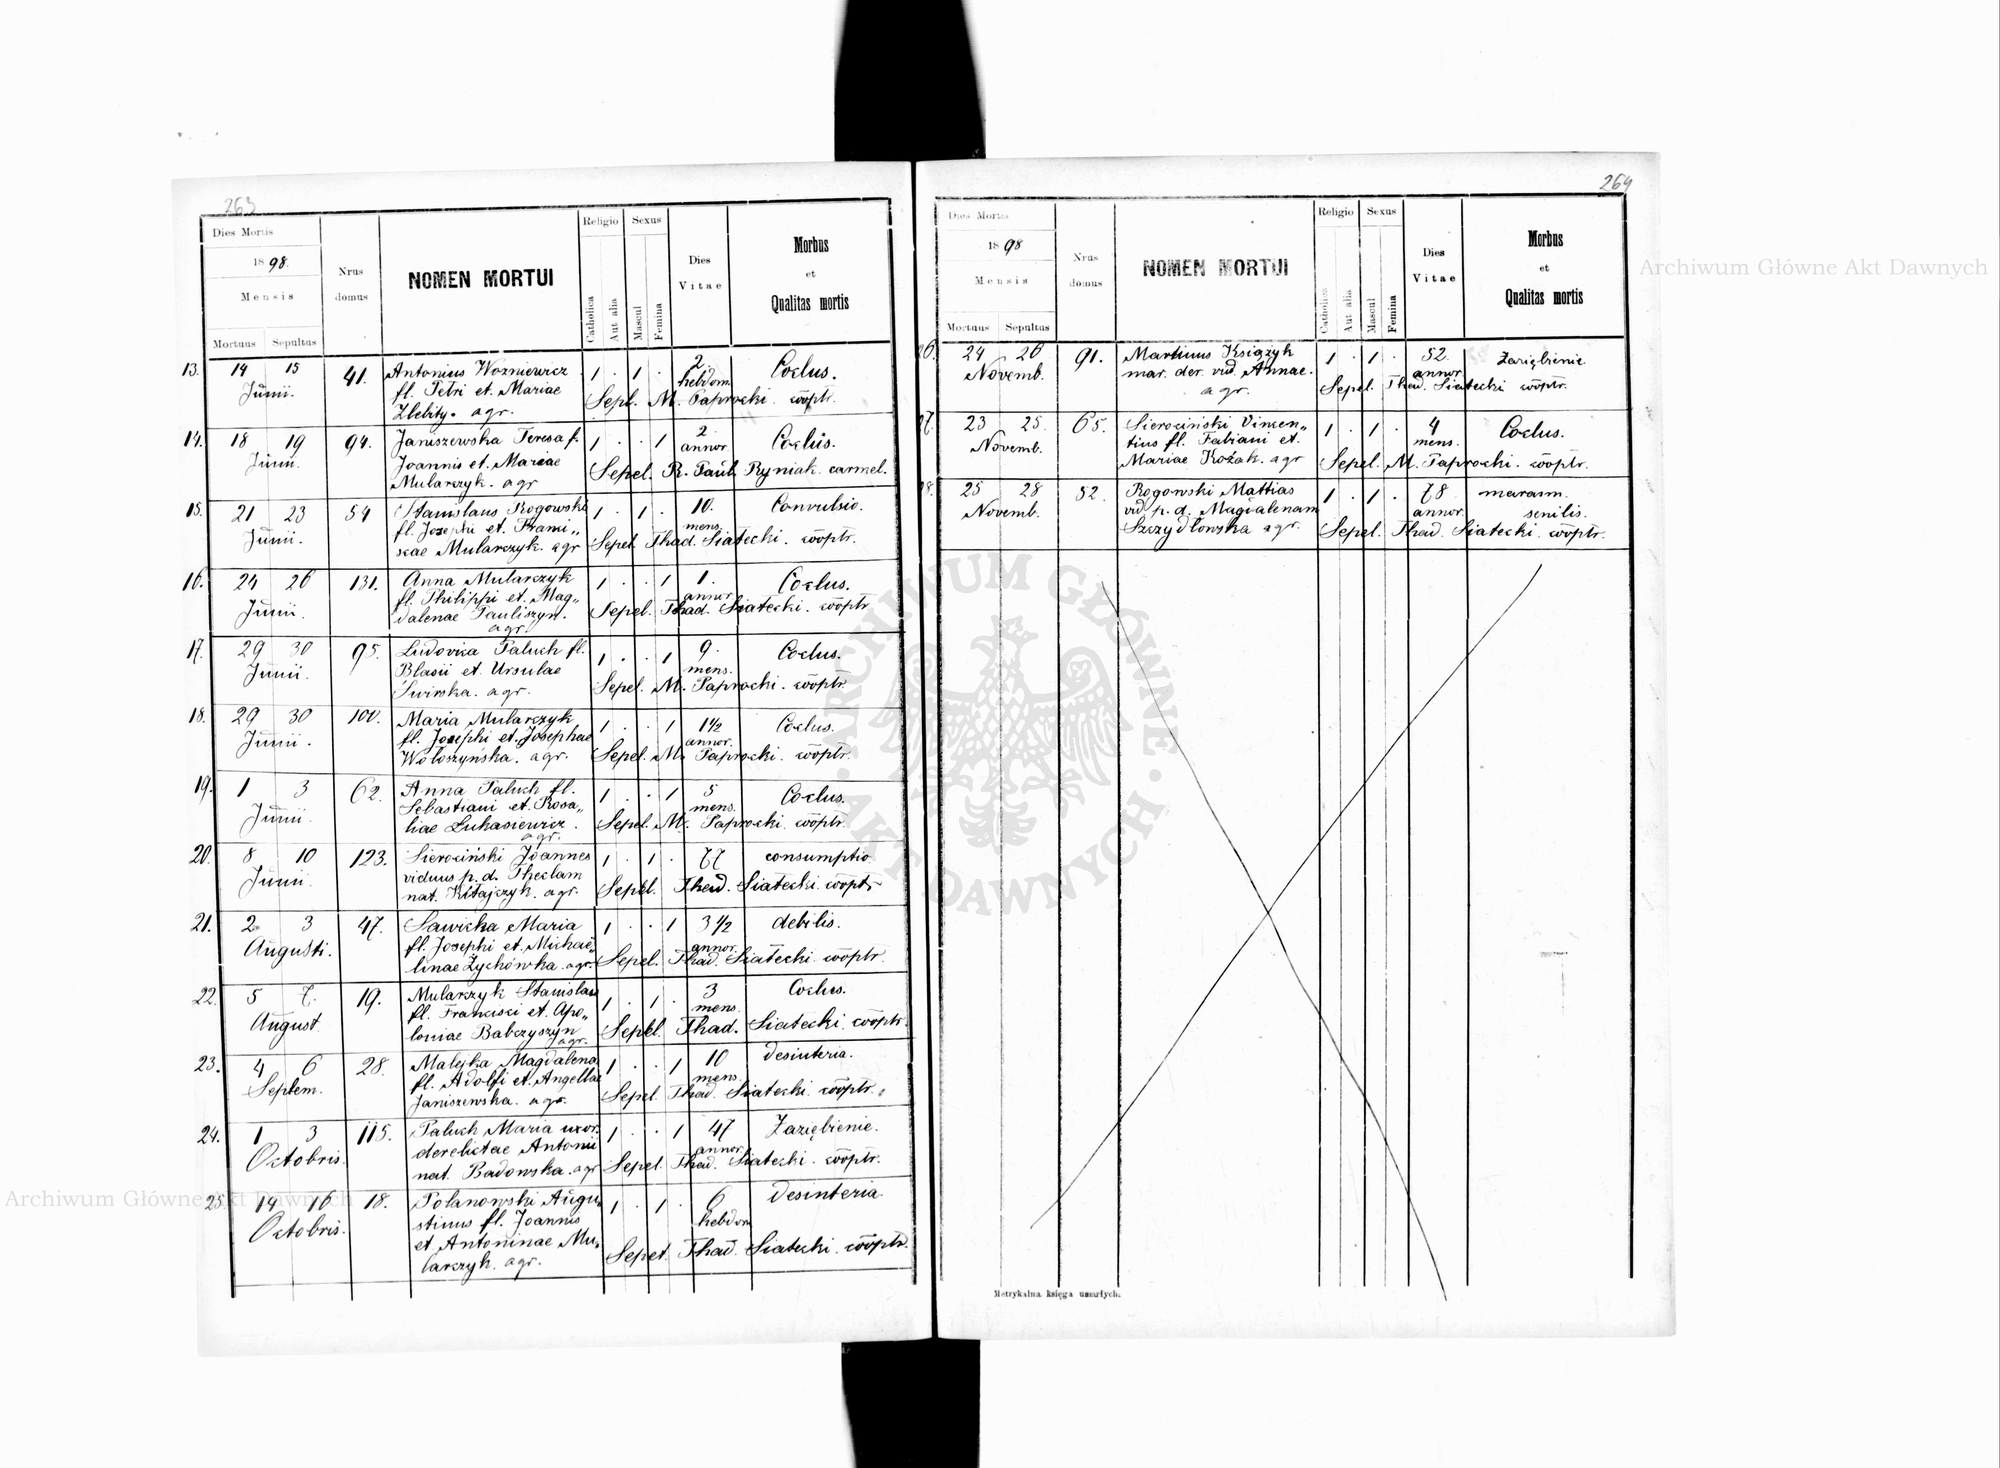 263
Dies Mortis
1898.
Mensis
Mortuus Sepultus
Nrus domus
NOMEN MORTUI
Religio
Catholica
Aut alia
Sexus
Mascul
Femina
Dies Vitae
Morbus
et
Qualitas mortis
13. 14 15 41. Antonius Wozniewicz 1 . 1 . 2 Coclus.
Junii. fl. Petri et Mariae hebdom.
Zlebity. agr. Sepel. M. Paprocki. cooptr.
14. 18 19 94. Janiszewska Teresa f. 1 . . 1 2 Coclus.
Junii. Joannis et Mariae annor
Mularczyk. agr Sepel. R. Paul. Ryniak carmel.
15. 21 23 54 Stanislaus Rogowski 1 . 1 . 10. Convulsio.
Junii. fl. Josephi et Franci„ mens.
scae Mularczyk. agr Sepel. Thad. Siatecki. cooptr.
16. 24 26 131. Anna Mularczyk 1 . . 1 1. Coclus.
Junii. fl. Philippi et Mag„ annor
dalenae Pauliszyn. Sepel. Thad. Siatecki. cooptr
agr.
17. 29 30 95. Ludovica Paluch fl. 1 . . 1 9. Coclus.
Junii. Blasii et Ursulae mens.
Świrska. agr. Sepel. M. Paprocki. cooptr.
18. 29 30 100. Maria Mularczyk 1 . . 1 1½ Coclus.
Junii. fl. Josephi et Josephae annor.
Wołoszyńska. agr. Sepel. M. Paprocki. cooptr.
19. 1 3 62. Anna Paluch fl. 1 . . 1 5 Coclus.
Junii. Sebastiani et Rosa„ mens.
liae Lukasiewicz. Sepel. M. Paprocki. cooptr.
agr.
20. 8 10 123. Sierociński Joannes 1 . 1 . 77 consumptio.
Junii. viduus p. d. Theclam
nat. Kitajczyk. agr. Sepel. Thad. Siatecki. cooptr
21. 2 3 47. Sawicka Maria 1 . . 1 3½ debilis.
Augusti. fl. Josephi et Michae„ annor.
linae Zychówka. agr. Sepel. Thad. Siatecki. cooptr.
22. 5 7. 19. Mularczyk Stanislaus 1 . 1 . 3 Coclus.
August. fl. Francisci et Apo„ mens.
loniae Babczyszyn Sepel. Thad. Siatecki. cooptr.
agr.
23. 4 6 28. Malejka Magdalena 1 . . 1 10 desinteria.
Septem. fl. Adolfi et Angellae mens.
Janiszewska. agr. Sepel. Thad. Siatecki. cooptr.
24. 1 3 115. Paluch Maria uxor. 1 . . 1 47 Zaziębienie.
Octobris. derelictae Antonii annor.
nat. Badowska. agr Sepel. Thad. Siatecki. cooptr.
25. 14 16 18. Polanowski Augu„ 1 . 1 . 6 desinteria.
Octobris. stinus fl. Joannis hebdom
et Antoninae Mu„ Sepel. Thad. Siatecki. cooptr.
larczyk. agr.
264
Dies Mortis
1898
Mensis
Mortuus Sepultus
Nrus domus
NOMEN MORTUI
Religio
Catholica
Aut alia
Sexus
Mascul
Femina
Dies Vitae
Morbus
et
Qualitas mortis
26. 24 26 91. Martinus Książyk 1 . 1 . 52. Zaziębienie
Novemb. mar. der. vid. Annae. annor
agr. Sepel. Thad. Siatecki cooptr.
27. 23 25. 65. Sierociński Vincen„ 1 . 1 . 4 Coclus.
Novemb. tius fl. Fabiani et mens.
Mariae Kożak. agr Sepel. M. Paprocki. cooptr.
28. 25 28 52. Rogowski Mattias 1 . 1 . 78 marasm.
Novemb. vid p. d. Magdalenam annor. senilis.
Szczydłowska agr. Sepel. Thad. Siatecki. cooptr.
Metrykalna księga umarłych.
Archiwum Główne Akt Dawnych
Archiwum Główne Akt Dawnych
ARCHIWUM GŁÓWNE · AKT DAWNYCH ·